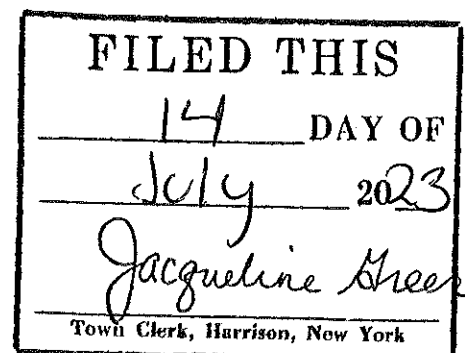 FILED THIS
14 DAY OF
July 2023
Jacqueline Greer
Town Clerk, Harrison, New York